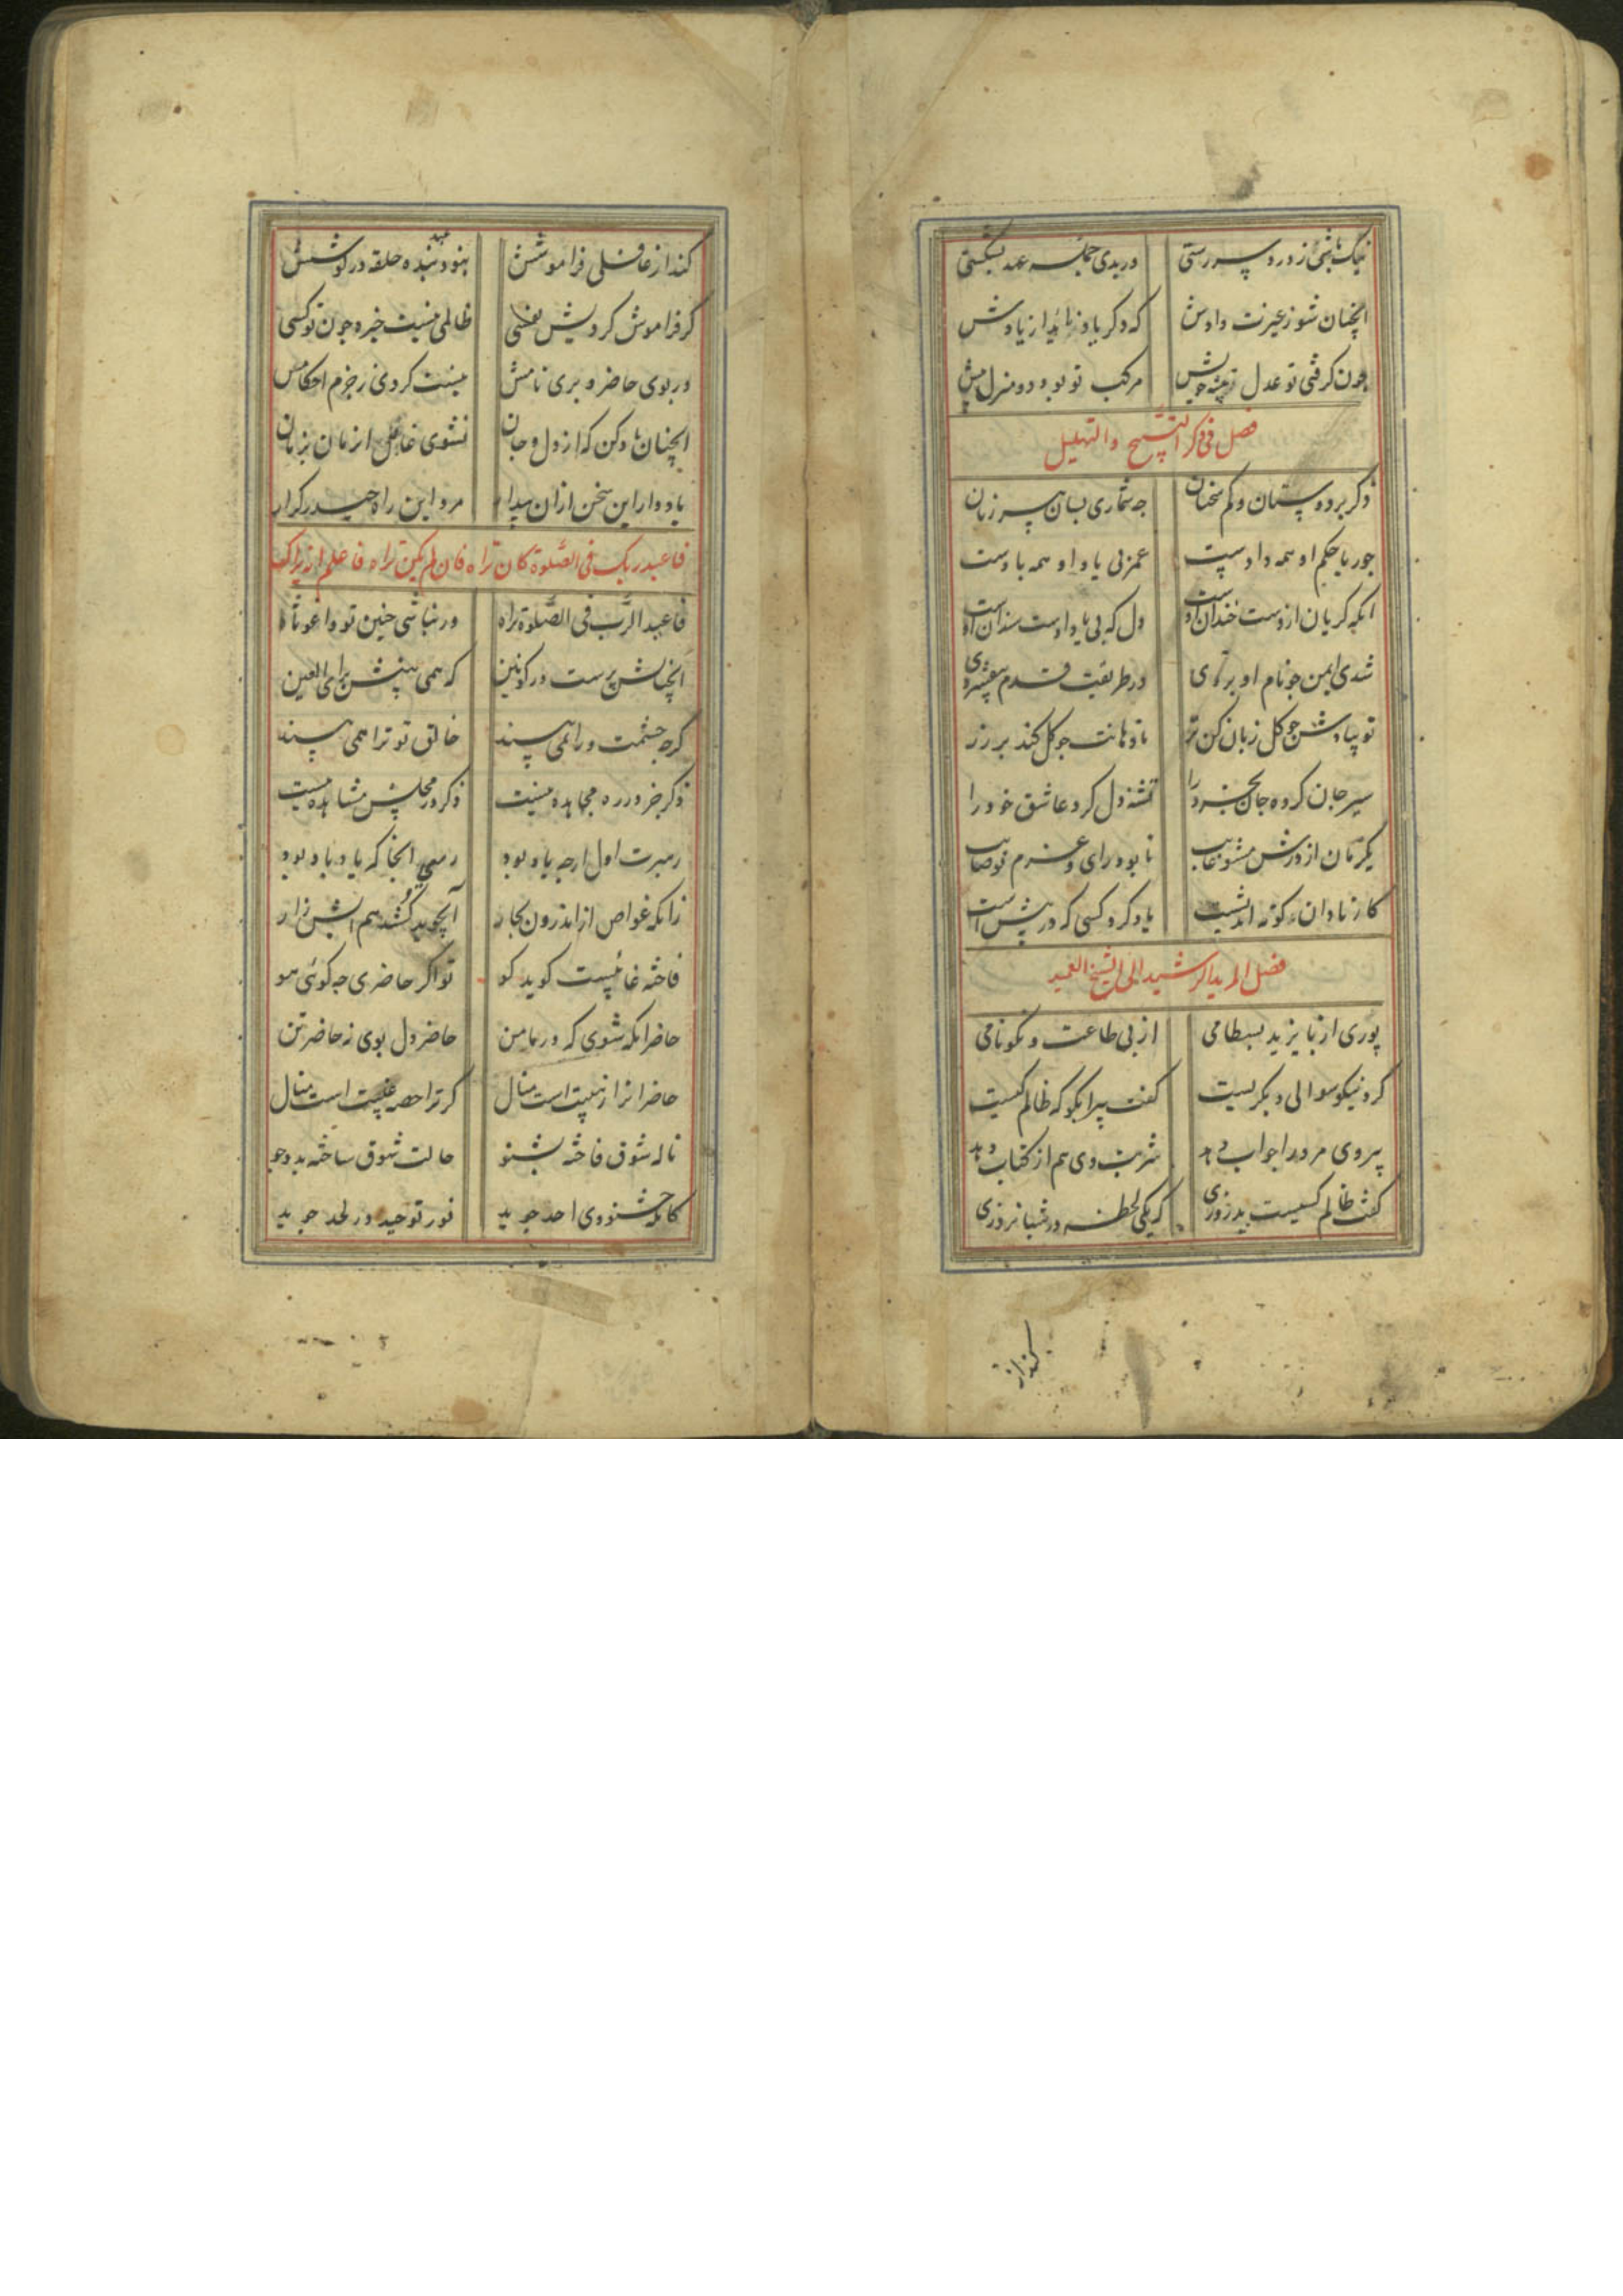 نیک باشی ز درد سر رستی    ور بدی جمله عهد بشکستی
انچنان شو ز غیرت دادش    که دگر یاد ناید از یادش
چون گرفتی تو عدل توشه خویش    مرکب تو بود دو منزل پیش
فصل فی ذکر التسبیح والتهلیل
ذکر بر دوستان و کم سخنان    چه شماری بسان پیر زنان
جور با حکم او همه دادست    عمر بی یاد او همه بادست
انکه گریان ازوست خندان اوست    دل که بی یاد اوست سندان اوست
شدی ایمن چو نام او بردی    در طریقت قدم بیفشردی
تو بیادش چو گل زبان کن تر    تا دهانت چو گل کند بر زر
سیر جان کرده جان بخرد را    تشنه دل کرد عاشق خود را
یکزمان از درش مشو غایب    تا بود رای و عزم تو صایب
کار نادان کوته اندیشست    یاد کرد کسی که در پیش است
فصل المرید الرشید الی الشیخ العمید
پوری از بایزید بسطامی    از پی طاعت و نکونامی
کرد نیکو سوالی و بگریست    گفت پیرا بگو که ظالم کیست
پیر وی مر ورا جواب بداد    شربت وی هم از کتاب بداد
گفت ظالم کسیست بد روزی    که یکی لحظه در شبانروزی
کند از
کند از غافلی فراموشش    نبود بنده حلقه در گوشش
گر فراموش کردیش نفسی    ظالمی نیست خیره چون تو کسی
ور بوی حاضر و بری نامش    نیست کردی ز جرم احکامش
انچنان یاد کن که از دل و جان    نشوی غافل از زمان بزمان
یاد دار این سخن ازان بیدار    مرد این راه حیدر کرار
فاعبد ربک فی الصلوة کان تراه فان لم یکن تراه فاعلم انه یراک
فاعبد الرب فی الصلوة تراه    ور نباشی چنین تو واغوثاه
انچنانش پرست در کونین    که همی بینیش برای العین
گرچه چشمت ورا همی بیند    خالق تو ترا همی بیند
ذکر جز در ره مجاهده نیست    ذکر در مجلس مشاهده نیست
رهبرت اول ارچه یاد بود    رسی انجا که یاد باد بود
زانکه غواص از اندرون بحار    آب جوید کشد هم آبش زار
فاخته غایبست گوید کو    تو اگر حاضری چه گوئی هو
حاضر انگه شوی که در مامن    حاضر دل بوی نه حاضر تن
حاضرانرا ز هیبت است منال    گر ترا حصه غیبت است منال
ناله شوق فاخته بشنو    حالت شوق ساخته بدو جو
کانکه خشنودی احد جوید    نور توحید در لحد جوید